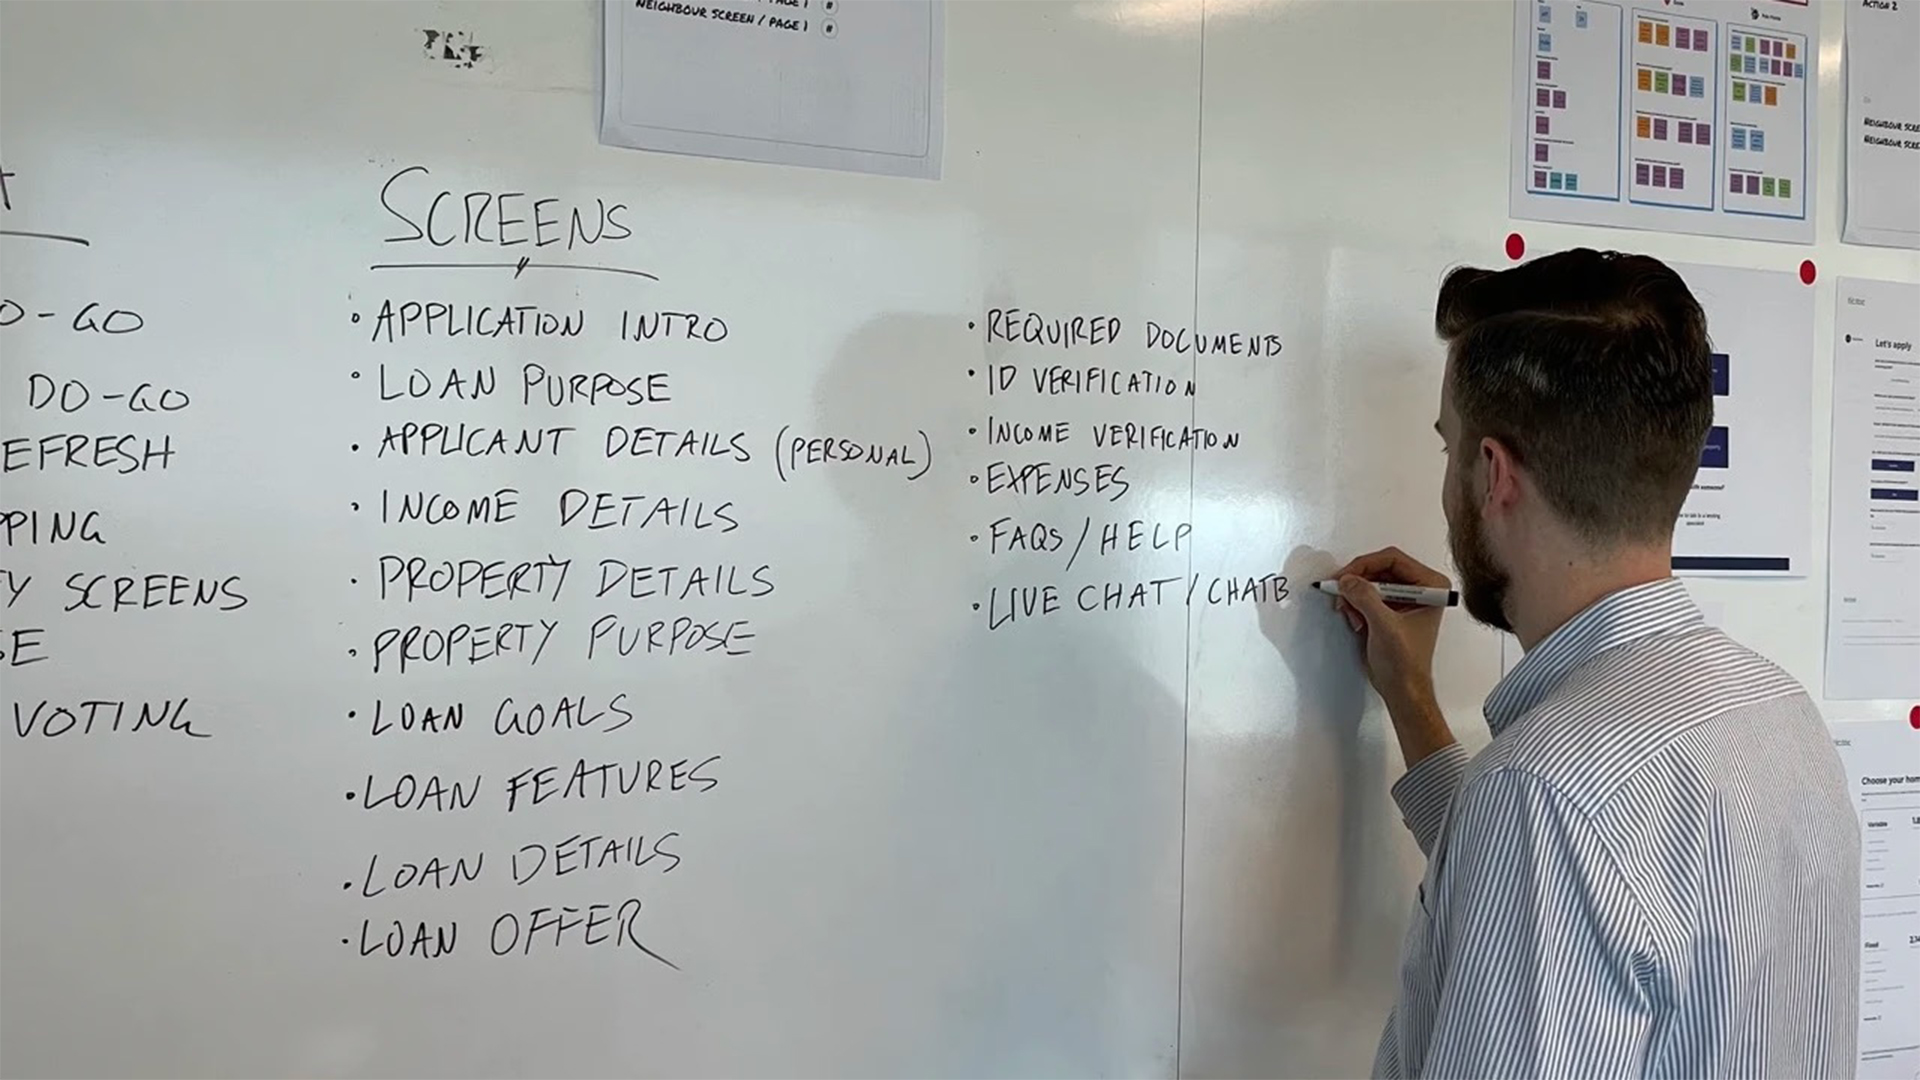 NEIGHBOUR SCREEN / PAGE 1 #
SCREENS
• APPLICATION INTRO
• LOAN PURPOSE
• APPLICANT DETAILS (PERSONAL)
• INCOME DETAILS
• PROPERTY DETAILS
• PROPERTY PURPOSE
• LOAN GOALS
• LOAN FEATURES
• LOAN DETAILS
• LOAN OFFER
• REQUIRED DOCUMENTS
• ID VERIFICATION
• INCOME VERIFICATION
• EXPENSES
• FAQS / HELP
• LIVE CHAT / CHATB
O-GO
DO-GO
EFRESH
PPING
Y SCREENS
SE
VOTING
ACTION 2
NEIGHBOUR SCRE
NEIGHBOUR SCRE
Let's apply
Choose your hom
Variable
Fixed